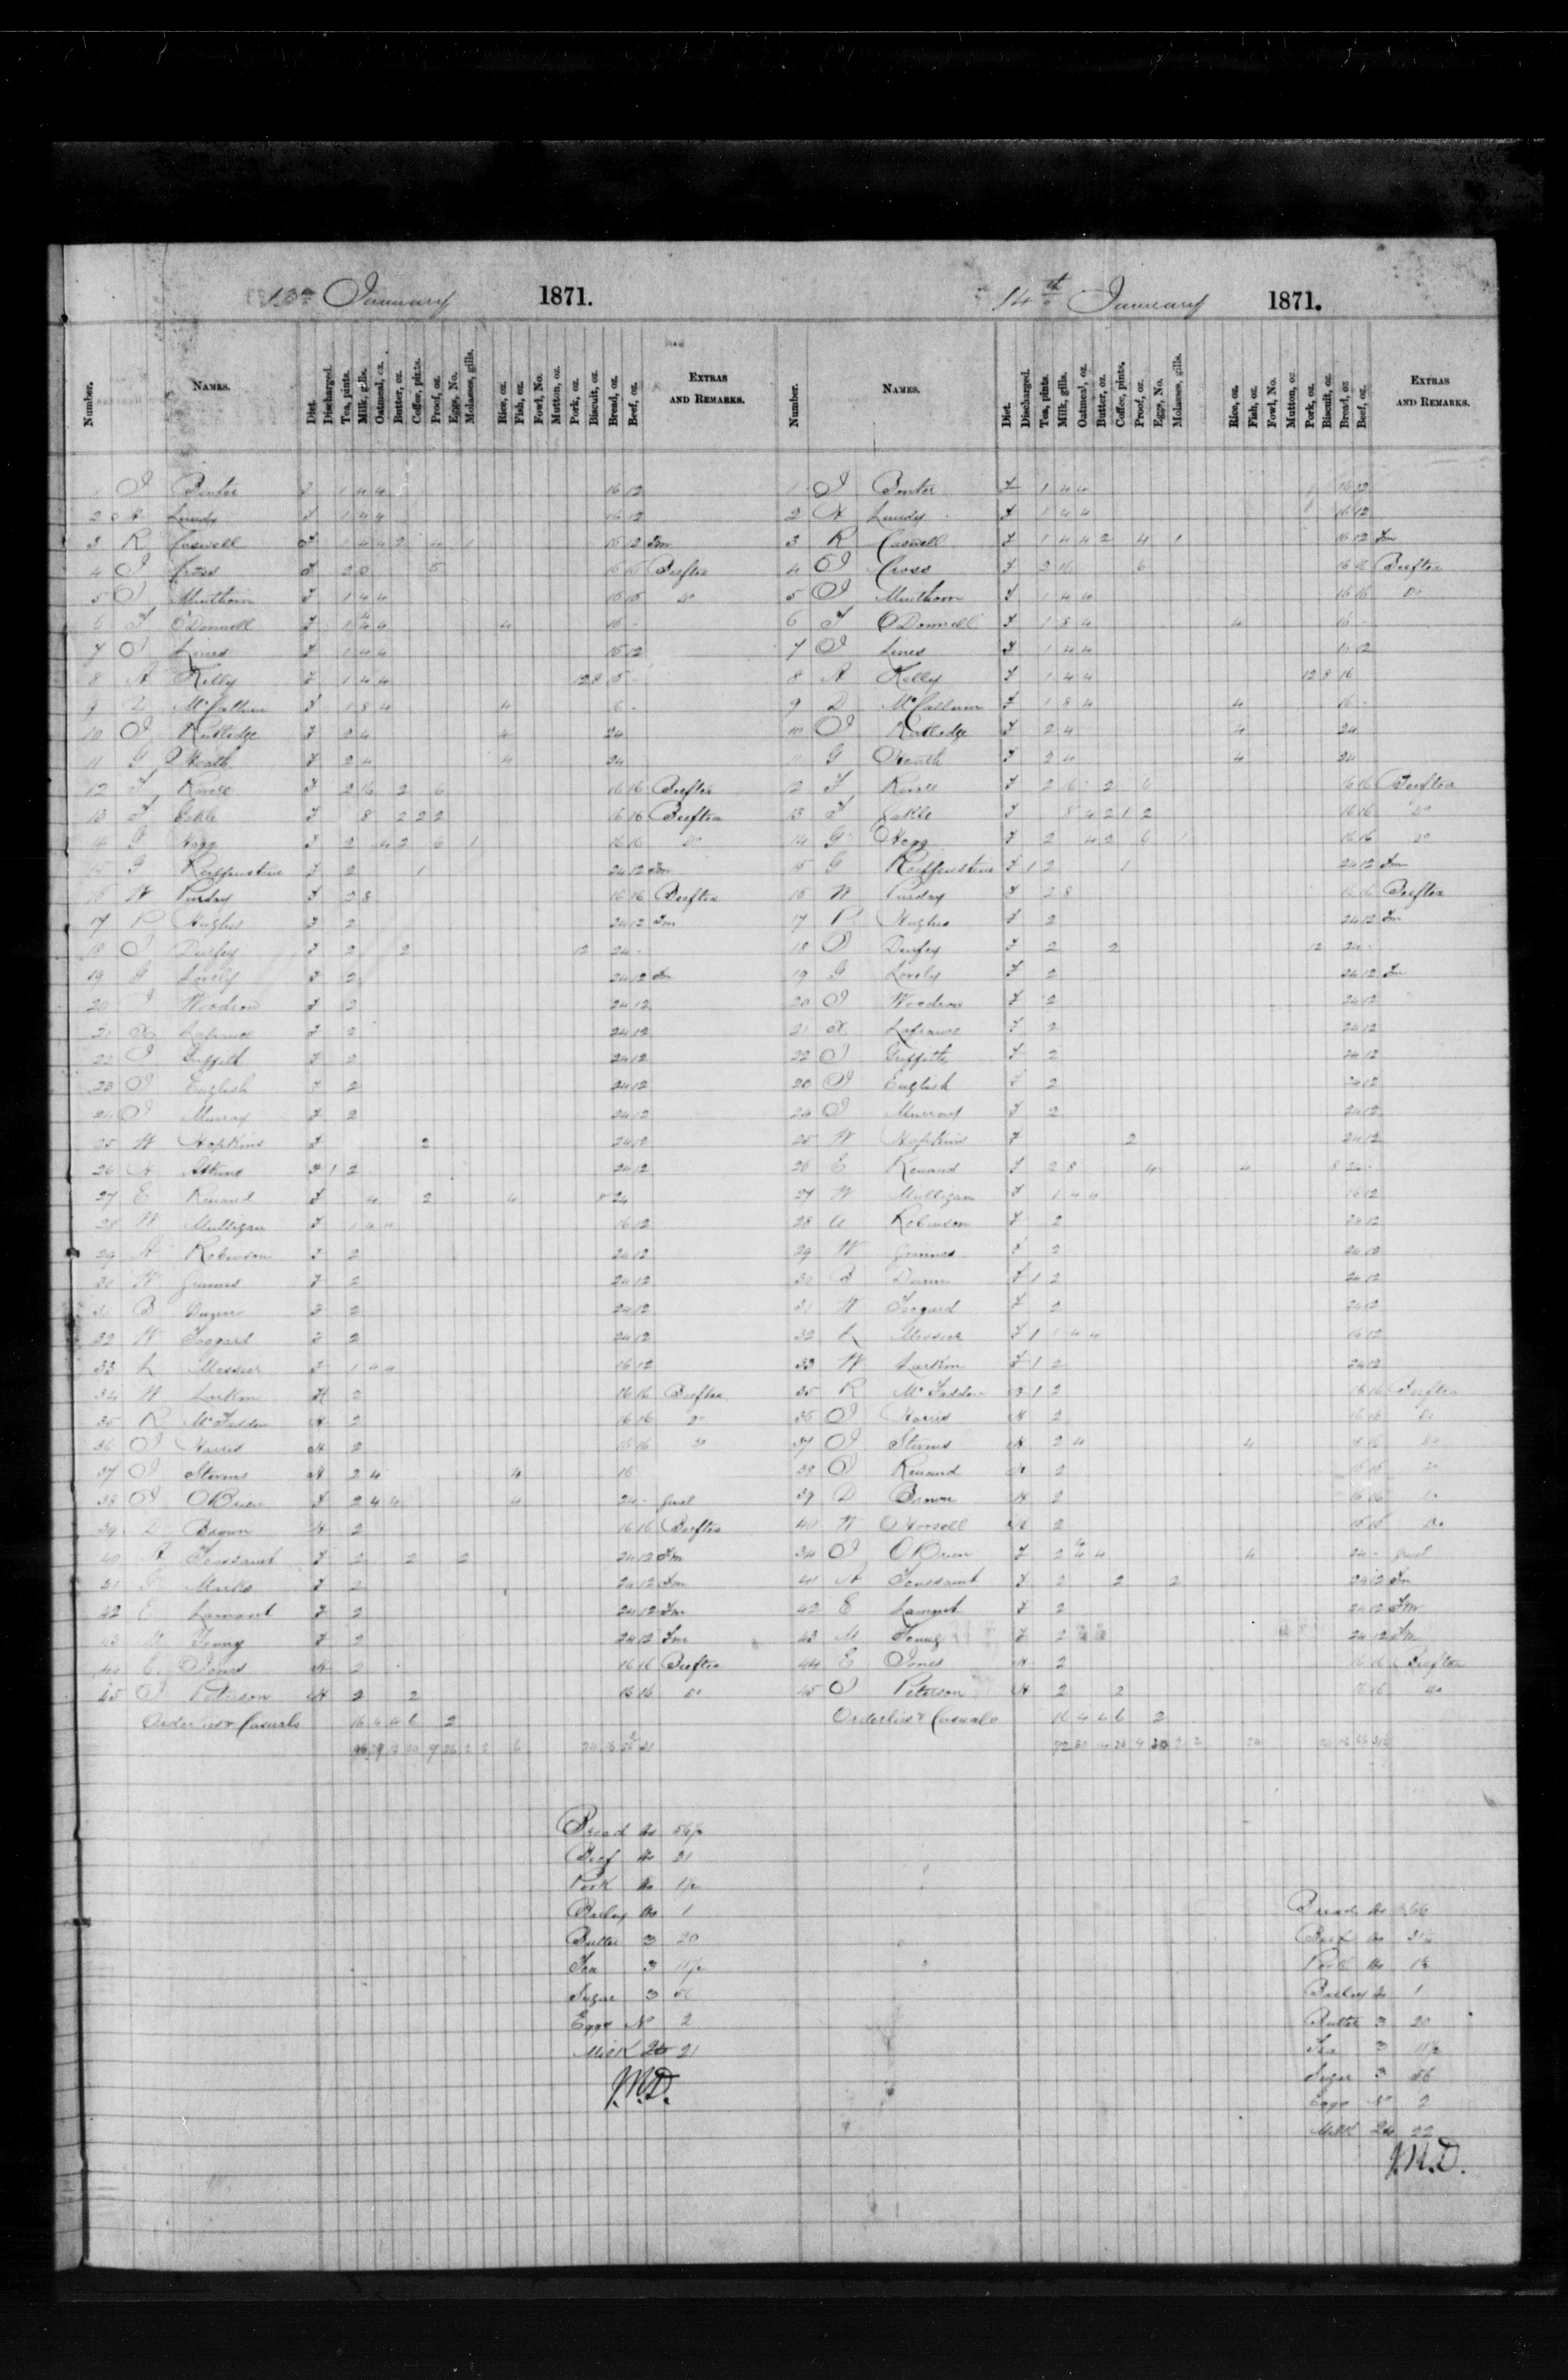 13th January 1871.
Number. NAMES. Diet. Discharged. Tea, pints. Milk, gills. Oatmeal, oz. Butter, oz. Coffee, pints. Proof, oz. Eggs, No. Molasses, gills. Rice, oz. Fish, oz. Fowl, No. Mutton, oz. Pork, oz. Biscuit, oz. Bread, oz. Beef, oz. EXTRAS AND REMARKS.
1 J Porter F 1 4 4 16 12
2 Lundy F 1 4 4 16 12
3 R Caswell F 1 4 4 2 4 1 16 12 Fm
4 J Cross F 2 8 6 16 16 Beeftea
5 J Minthorn F 1 4 4 16 16 Do
6 F O'Donnell F 1 4 4 4 16 -
7 J Lines F 1 4 4 16 12
8 A Kelly F 1 4 4 12 8 -
9 D McCallum F 1 8 4 4 -
10 J Rutledge F 2 4 4 24
11 G Heath F 2 4 4 24
12 F F 2 16 2 6 16 16 Beeftea
13 F F 8 2 2 2 16 16 Beeftea
14 G Hogg F 2 4 2 6 1 16 16 Do
15 G Reiffenstine F 2 1 24 12 Fm
16 W Purday F 2 8 16 16 Beeftea
17 P Hughes F 2 24 12 Fm
18 J Durfey F 2 2 12 24 -
19 G Lovely F 2 24 12 Fm
20 J Woodson F 2 24 12
21 Lafrance F 2 24 12
22 J Griffith F 2 24 12
23 J English F 2 24 12
24 J Murray F 2 24 12
25 W Hopkins F 2 24 12
26 A Atkins F 1 2 24 12
27 E Renaud F 4 2 4 24
28 W Mulligan F 1 4 4 16 12
29 A Robinson F 2 24 12
30 W Grimes F 2 24 12
31 B F 2 24 12
32 W F 2 24 12
33 L Messier F 1 4 4 16 12
34 W Larkin H 2 16 16 Beeftea
35 R McFadden H 2 16 16 Do
36 J Harris H 2 16 16 Do
37 J Storms H 2 4 4 16
38 J O'Brien F 2 4 4 4 24 - gruel
39 D Brown H 2 16 16 Beeftea
40 A Toussaint F 2 2 2 24 12 Fm
41 Marks F 2 24 12 Fm
42 E Lamont F 2 24 12 Fm
43 M Young F 2 24 12 Fm
44 E Jones H 2 16 16 Beeftea
45 J Peterson H 2 2 16 16 Do
Orderlies & Casuals 16 4 4 6 2
Bread lbs 56½
Beef lbs 31
Pork lbs 1½
Barley lbs 1
Butter 3 20
Tea 3 11½
Sugar 3 56
Eggs No 2
Milk 21
J.M.D.
14th January 1871.
Number. NAMES. Diet. Discharged. Tea, pints. Milk, gills. Oatmeal, oz. Butter, oz. Coffee, pints. Proof, oz. Eggs, No. Molasses, gills. Rice, oz. Fish, oz. Fowl, No. Mutton, oz. Pork, oz. Biscuit, oz. Bread, oz. Beef, oz. EXTRAS AND REMARKS.
1 J Porter F 1 4 4 16 12
2 Lundy F 1 4 4 16 12
3 R Caswell F 1 4 4 2 4 1 16 12 Fm
4 J Cross F 2 16 6 16 16 Beeftea
5 J Minthorn F 1 4 4 16 16 Do
6 F O'Donnell F 1 8 4 4 16 -
7 J Lines F 1 4 4 16 12
8 A Kelly F 1 4 4 12 8 16
9 D McCallum F 1 8 4 4 16 -
10 J Rutledge F 2 4 4 24
11 G Heath F 2 4 4 24
12 F F 2 16 2 6 16 16 Beeftea
13 F F 8 4 2 1 2 16 16 Do
14 G Hogg F 2 4 2 6 1 16 16 Do
15 G Reiffenstine F 1 2 1 24 12 Fm
16 W Purday F 2 8 16 16 Beeftea
17 P Hughes F 2 24 12 Fm
18 J Durfey F 2 2 12 24 -
19 G Lovely F 2 24 12 Fm
20 J Woodson F 2 24 12
21 Lafrance F 2 24 12
22 J Griffith F 2 24 12
23 J English F 2 24 12
24 J Murray F 2 24 12
25 W Hopkins F 2 24 12
26 E Renaud F 2 8 4 4 8 24 -
27 W Mulligan F 1 4 4 16 12
28 A Robinson F 2 24 12
29 W Grimes F 2 24 12
30 B F 1 2 24 12
31 W F 2 24 12
32 L Messier F 1 1 4 4 16 12
33 W Larkin F 1 2 24 12
35 R McFadden 1 2 16 16 Beeftea
36 J Harris H 2 16 16 Do
37 J Storms H 2 4 4 16 Do
38 J Renaud H 2 16 16 Do
39 D Brown H 2 16 16 Do
40 W Worsell H 2 16 16 Do
34 J O'Brien F 2 4 4 4 24 - gruel
41 A Toussaint F 2 2 2 24 12 Fm
42 E Lamont F 2 24 12 Fm
43 M Young F 2 24 12 Fm
44 E Jones H 2 16 16 Beeftea
45 J Peterson H 2 2 16 16 Do
Orderlies & Casuals 16 4 4 6 2
Bread lbs 56
Beef lbs 31½
Pork lbs 1½
Barley lbs 1
Butter 3 20
Tea 3 11½
Sugar 3 56
Eggs No 2
Milk 22
J.M.D.